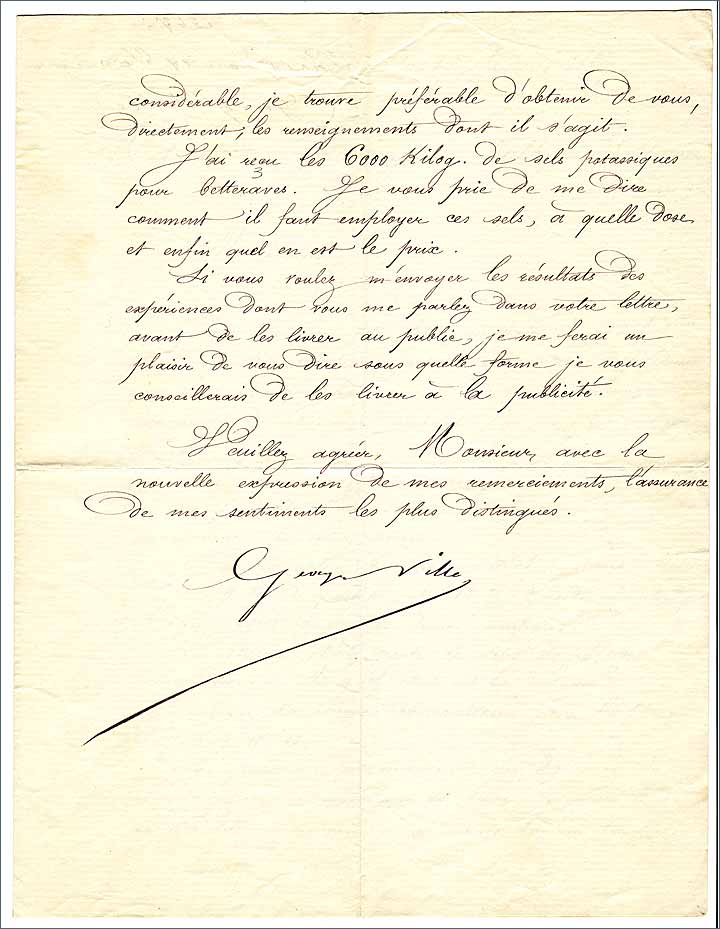 considérable, je trouve préférable d'obtenir de vous,
directement, les renseignements dont il s'agit.
J'ai reçu les 6000 Kilog. de sels potassiques
pour betteraves. Je vous prie de me dire
comment il faut employer ces sels, à quelle dose
et enfin quel en est le prix.
Si vous voulez m'envoyer les résultats des
expériences dont vous me parlez dans votre lettre,
avant de les livrer au public, je me ferai un
plaisir de vous dire sous quelle forme je vous
conseillerais de les livrer à la publicité.
Veuillez agréer, Monsieur, avec la
nouvelle expression de mes remerciements, l'assurance
de mes sentiments les plus distingués.
Georges Ville